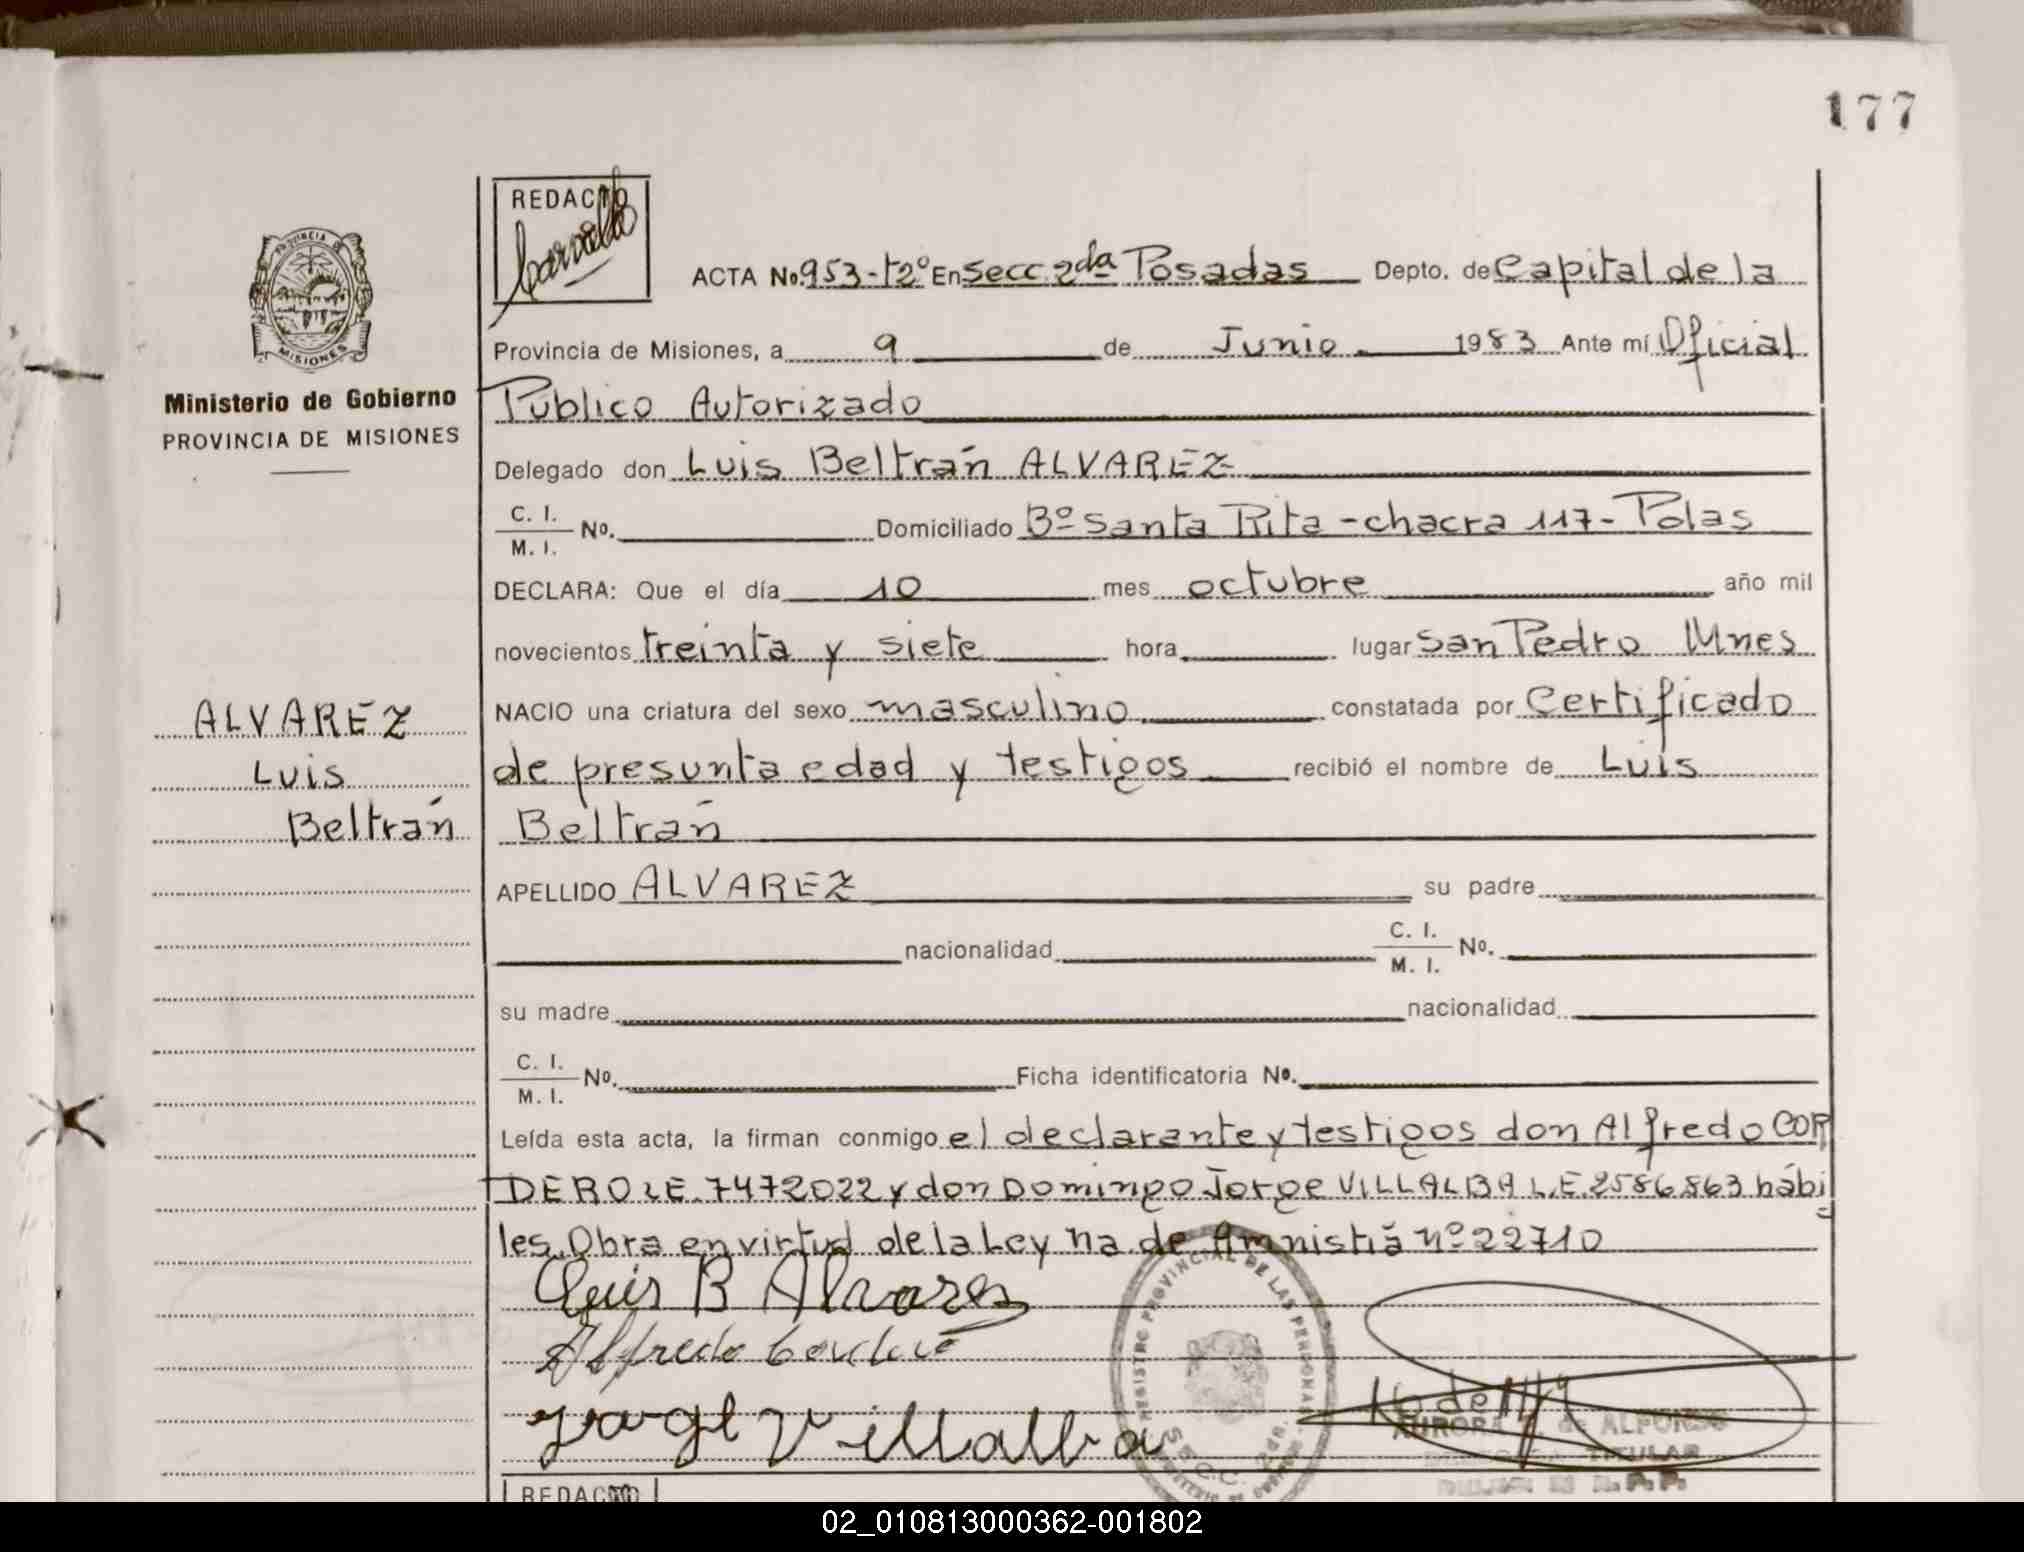 177
REDACTO
Carvallo
ACTA No. 953-t2º En Secc 2da Posadas Depto. de Capital de la
Provincia de Misiones, a 9 de Junio 1983 Ante mí Oficial
Público Autorizado
Delegado don Luis Beltrán ALVAREZ
C. I.
M. I. No. Domiciliado Bº Santa Rita - chacra 117 - Pdas
DECLARA: Que el día 10 mes octubre año mil
novecientos treinta y siete hora lugar San Pedro Mnes
NACIO una criatura del sexo masculino constatada por Certificado
de presunta edad y testigos recibió el nombre de Luis
Beltrán
APELLIDO ALVAREZ su padre
nacionalidad C. I.
M. I. No.
su madre nacionalidad
C. I.
M. I. No. Ficha identificatoria No.
Leída esta acta, la firman conmigo el declarante y testigos don Alfredo COR
DERO L.E. 7472022 y don Domingo Jorge VILLALBA L.E. 2586.863 hábi
les. Obra en virtud de la Ley Na. de Amnistiá nº 22710
Luis B Alvarez
Alfredo Cordero
Jorge Villalba
REGISTRO PROVINCIAL DE LAS PERSONAS
SECC. 2da.
AURORA de ALFONSO
TITULAR
PROVINCIA DE
MISIONES
Ministerio de Gobierno
PROVINCIA DE MISIONES
ALVAREZ
Luis
Beltrán
REDACTO
02_010813000362-001802